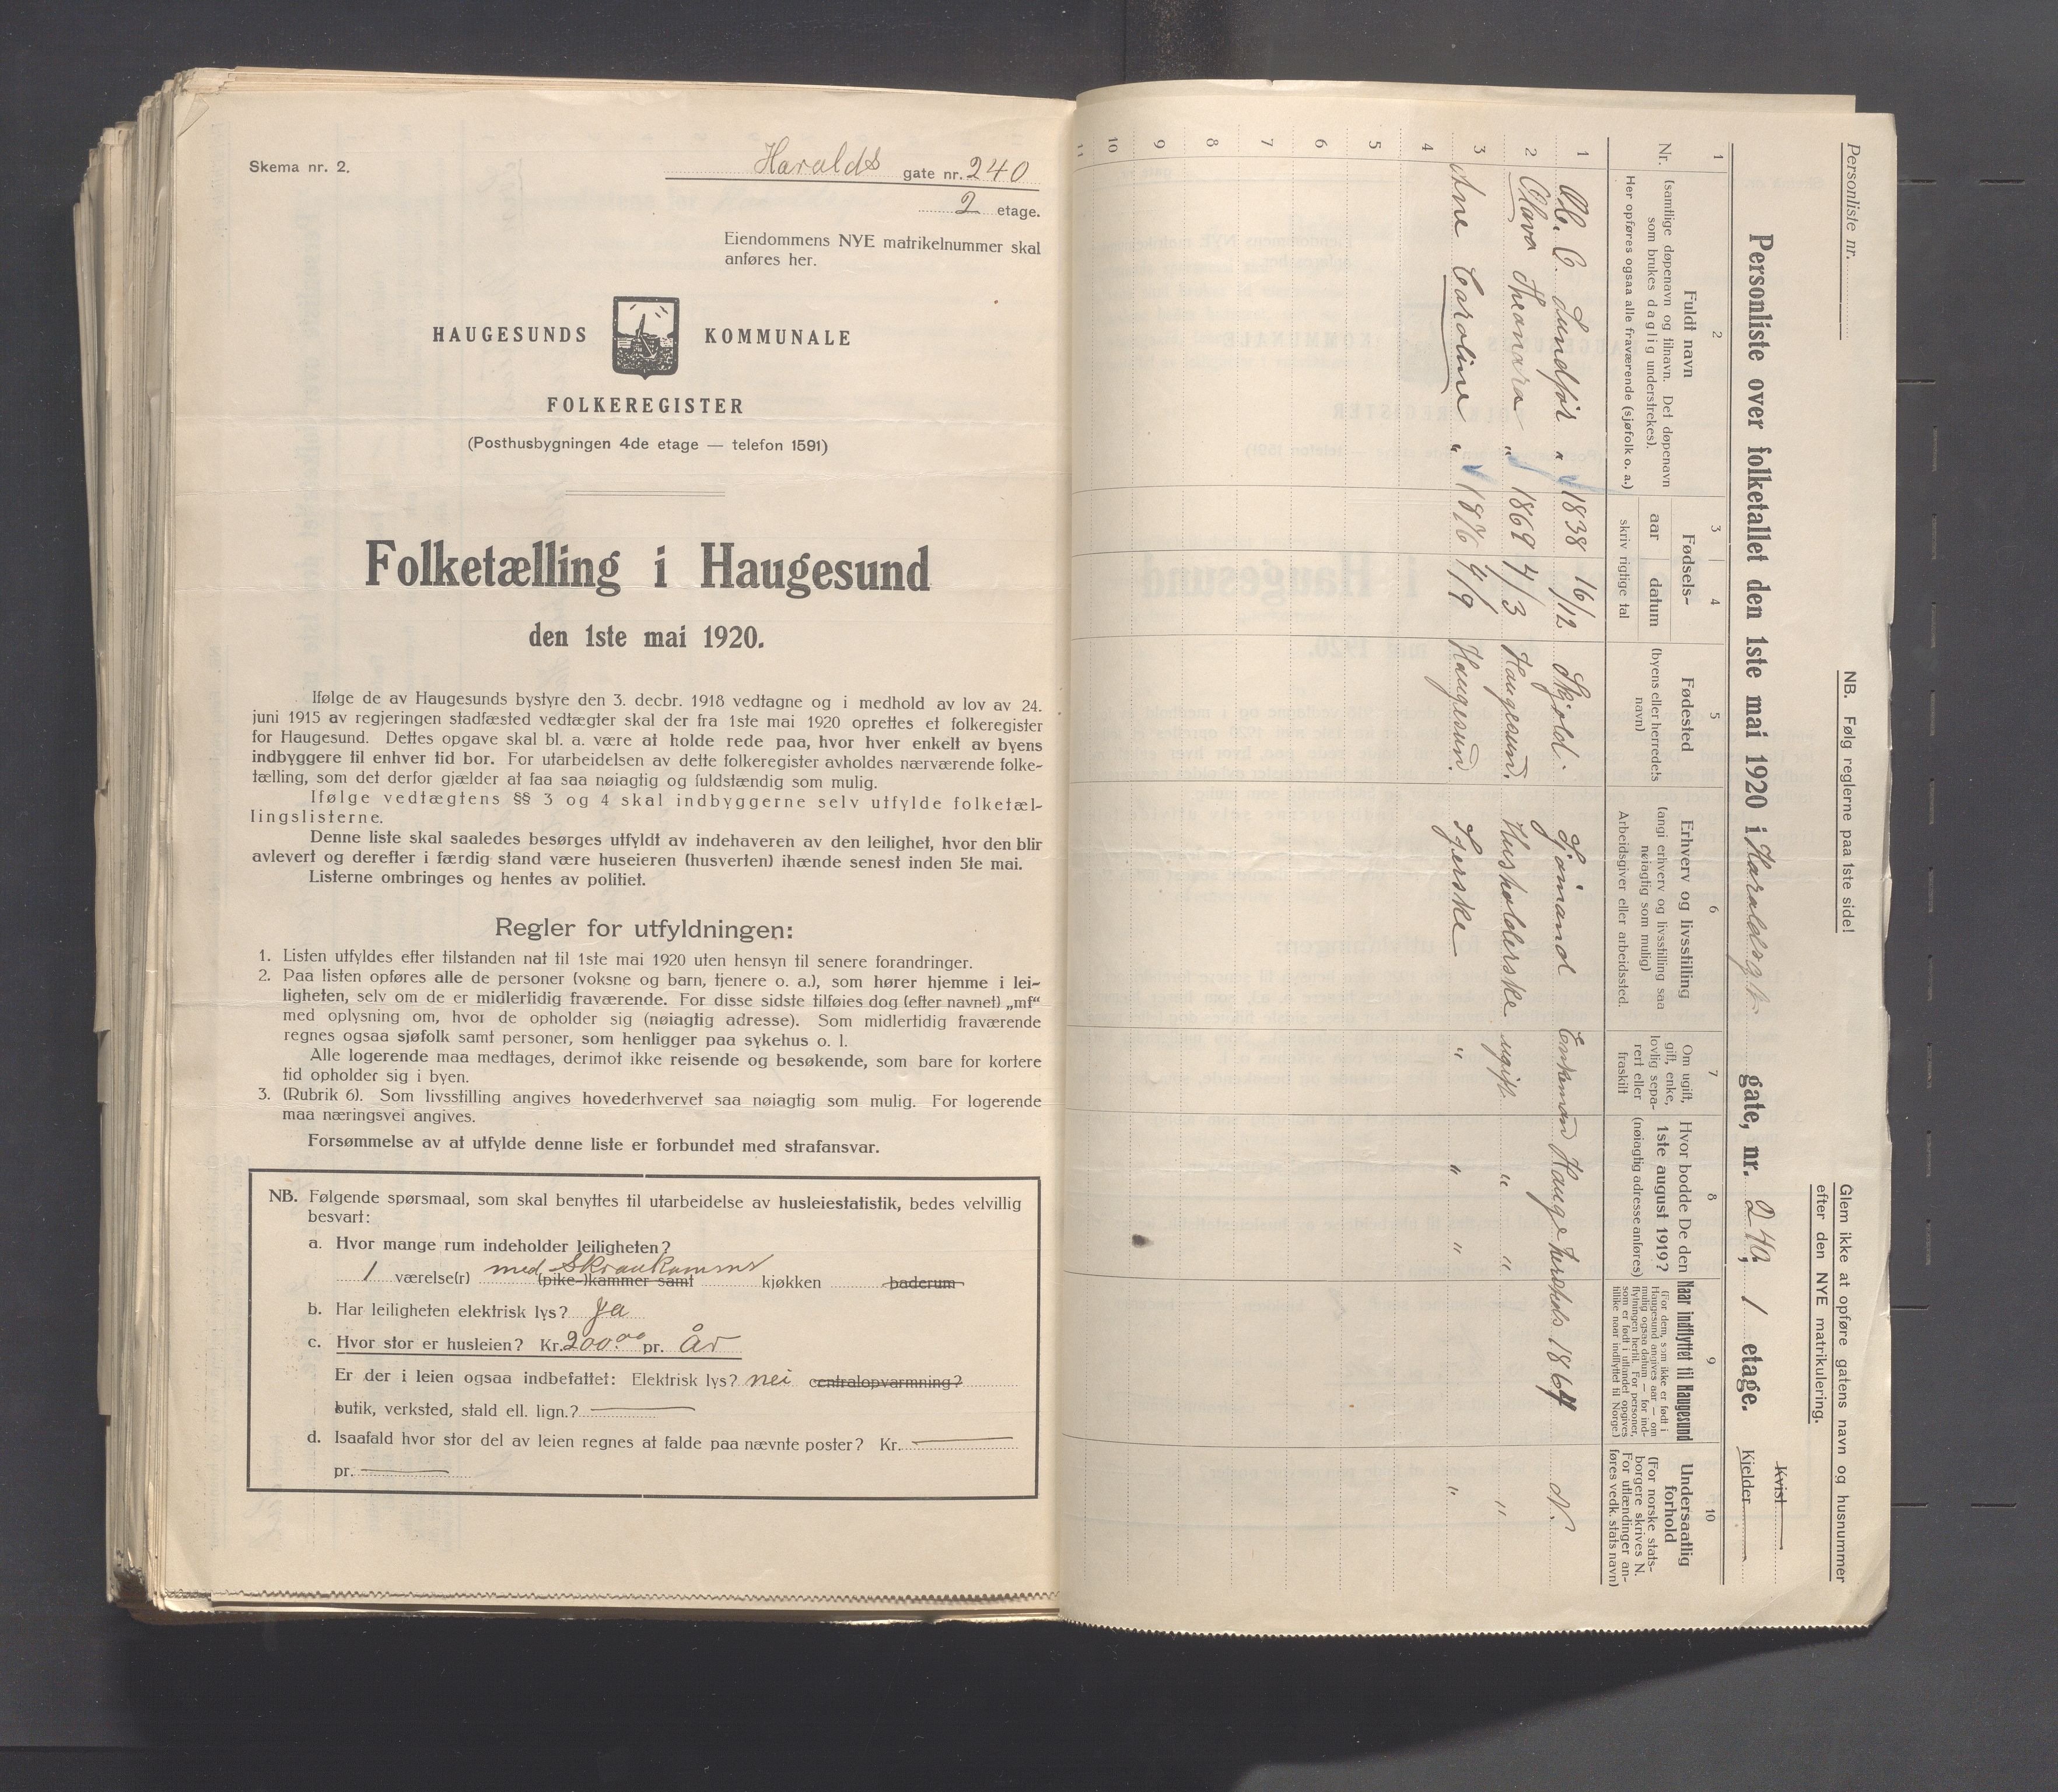 Skema nr. 2.
Haralds gate nr. 240
2 etage.
Eiendommens NYE matrikelnummer skal
anføres her.
HAUGESUNDS KOMMUNALE
FOLKEREGISTER
(Posthusbygningen 4de etage — telefon 1591)
Folketælling i Haugesund
den 1ste mai 1920.
Ifølge de av Haugesunds bystyre den 3. decbr. 1918 vedtagne og i medhold av lov av 24.
juni 1915 av regjeringen stadfæsted vedtægter skal der fra 1ste mai 1920 oprettes et folkeregister
for Haugesund. Dettes opgave skal bl. a. være at holde rede paa, hvor hver enkelt av byens
indbyggere til enhver tid bor. For utarbeidelsen av dette folkeregister avholdes nærværende folke-
tælling, som det derfor gjælder at faa saa nøiagtig og fuldstændig som mulig.
Ifølge vedtægtens §§ 3 og 4 skal indbyggerne selv utfylde folketæl-
lingslisterne.
Denne liste skal saaledes besørges utfyldt av indehaveren av den leilighet, hvor den blir
avlevert og derefter i færdig stand være huseieren (husverten) ihænde senest inden 5te mai.
Listerne ombringes og hentes av politiet.
Regler for utfyldningen:
1. Listen utfyldes efter tilstanden nat til 1ste mai 1920 uten hensyn til senere forandringer.
2. Paa listen opføres alle de personer (voksne og barn, tjenere o. a.), som hører hjemme i lei-
ligheten, selv om de er midlertidig fraværende. For disse sidste tilføies dog (efter navnet) „mf“
med oplysning om, hvor de opholder sig (nøiagtig adresse). Som midlertidig fraværende
regnes ogsaa sjøfolk samt personer, som henligger paa sykehus o. l.
Alle logerende maa medtages, derimot ikke reisende og besøkende, som bare for kortere
tid opholder sig i byen.
3. (Rubrik 6). Som livsstilling angives hovederhvervet saa nøiagtig som mulig. For logerende
maa næringsvei angives.
Forsømmelse av at utfylde denne liste er forbundet med strafansvar.
NB. Følgende spørsmaal, som skal benyttes til utarbeidelse av husleiestatistik, bedes velvillig
besvart:
a. Hvor mange rum indeholder leiligheten?
med Skraukammer
1 værelse(r) (pike-)kammer samt kjøkken baderum
b. Har leiligheten elektrisk lys? Ja
c. Hvor stor er husleien? Kr. 200.00 pr. År
Er der i leien ogsaa indbefattet: Elektrisk lys? nei centralopvarmning?
butik, verksted, stald ell. lign.?
d. Isaafald hvor stor del av leien regnes at falde paa nævnte poster? Kr.
pr.
Personliste nr.
NB. Følg reglerne paa 1ste side!
Glem ikke at opføre gatens navn og husnummer
efter den NYE matrikulering.
Kvist
Personliste over folketallet den 1ste mai 1920 i Haraldsgt. gate, nr. 240, 1 etage.
Kjelder
1 2 3 4 5 6 7 8 9 10
Nr.
Fuldt navn
(samtlige døpenavn og tilnavn. Det døpenavn
som brukes daglig understrekes).
Her opføres ogsaa alle fraværende (sjøfolk o. a.)
Fødsels-
aar datum
skriv rigtige tal
Fødested
(byens eller herredets
navn)
Erhverv og livsstilling
(angi erhverv og livsstilling saa
nøiagtig som mulig)
Arbeidsgiver eller arbeidssted.
Om ugift,
gift, enke,
lovlig sepa-
rert eller
fraskilt
Hvor bodde De den
1ste august 1919?
(nøiagtig adresse anføres)
Naar indflyttet til Haugesund
(For dem, som ikke er født i
Haugesund angives aar — om
mulig ogsaa datum — for ind-
flytningen hertil. For personer,
som er født i utlandet opgives
tillike naar indflyttet til Norge.)
Undersaatlig
forhold
(For norske stats-
borgere skrives N.
For utlændinger an-
føres vedk. stats navn)
1 Ole C. Lundfør " 1838 16/12 Skjold. Sjömand Enkemand Hauge 1864 N.
2 Olava Theonara " 1869 4/3 Haugesund. Husholderske ugift. " " "
3 Ane Caroline " 1876 9/9 Haugesund. Syerske " " " "
4
5
6
7
8
9
10
11